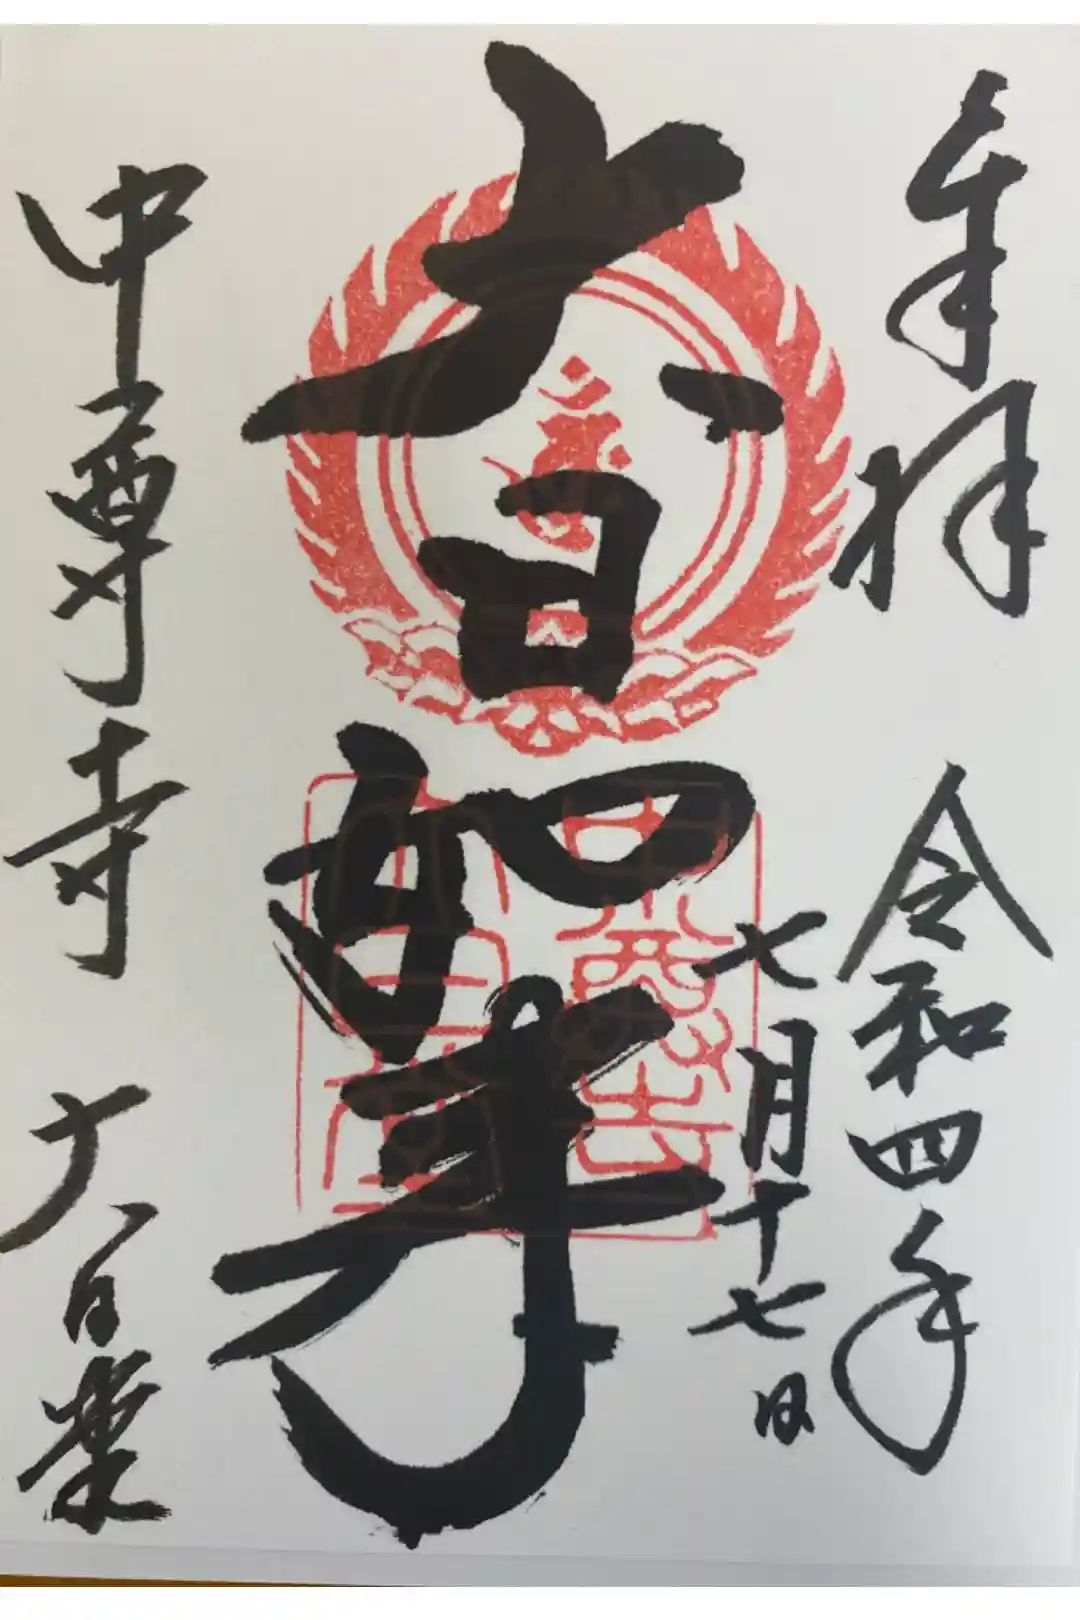 奉拝 令和四年
七月十七日
大日如来
中尊寺 大日堂